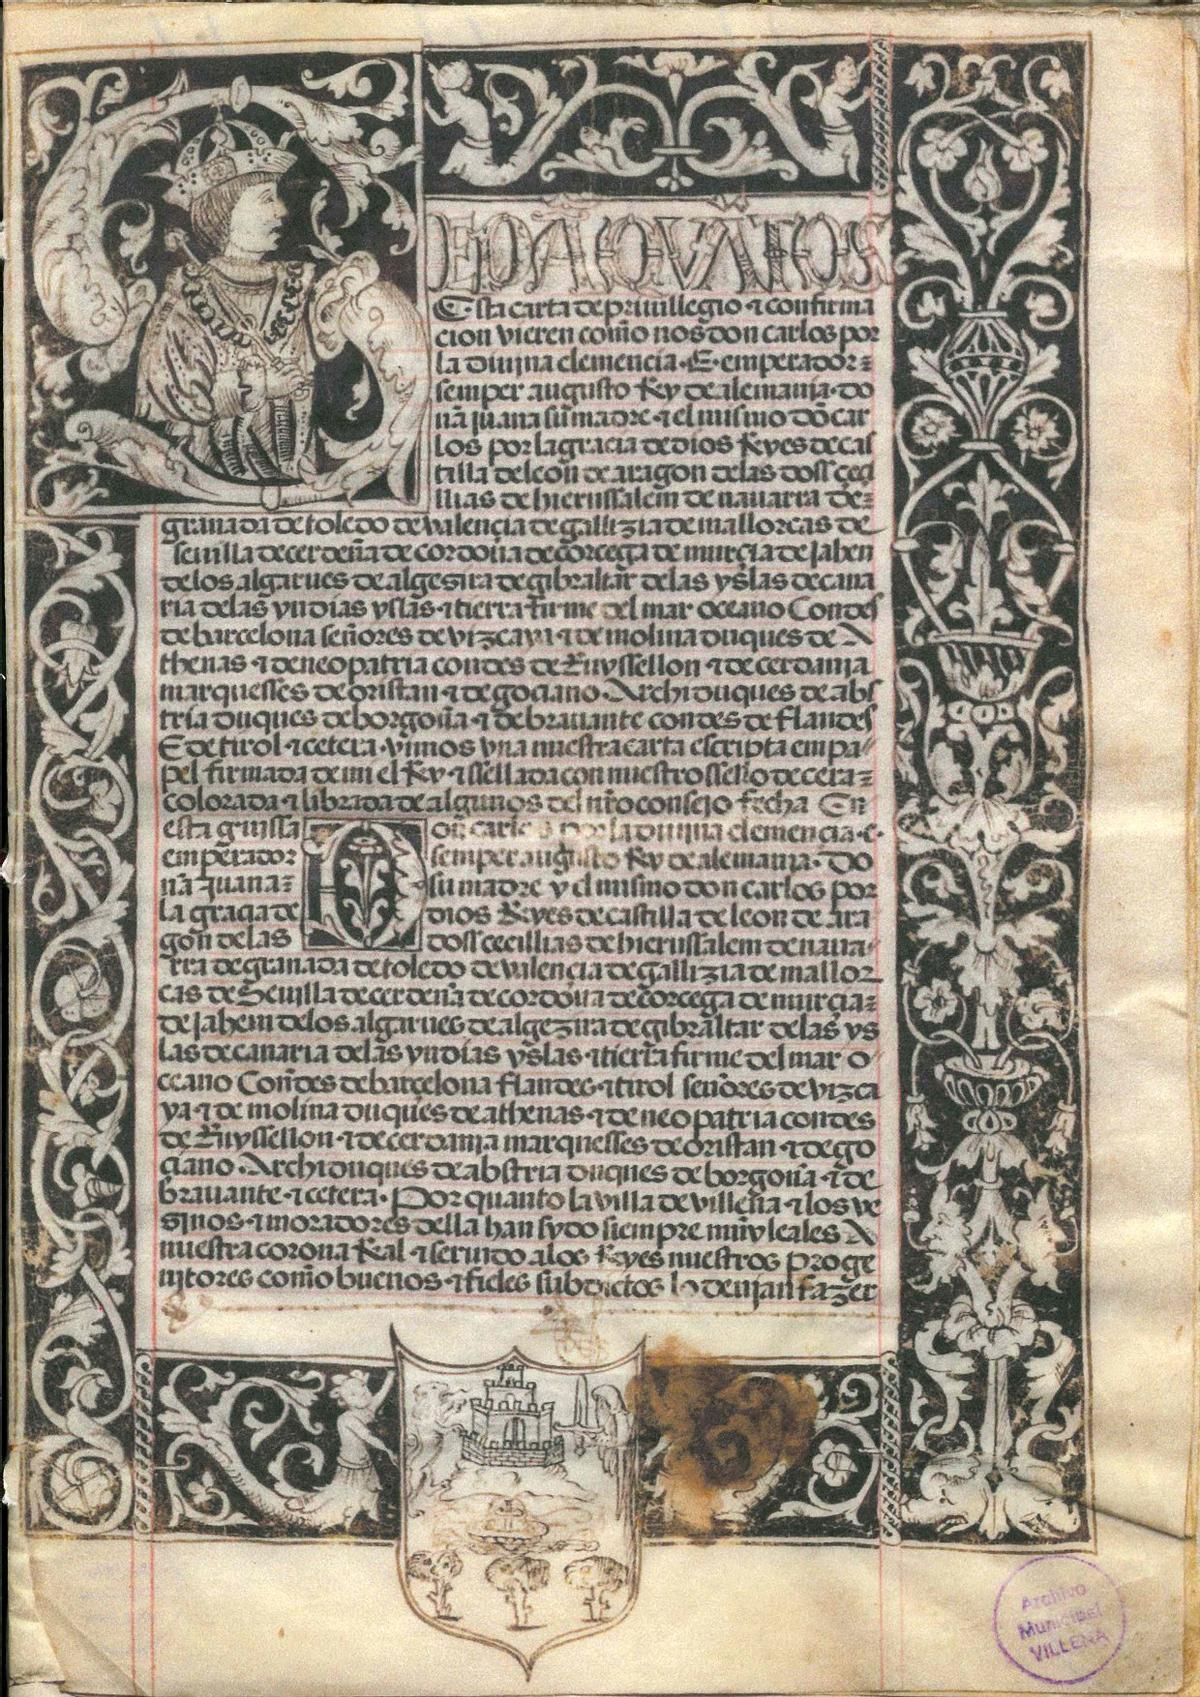 SEPÃ QVÃTOS
Esta carta de priuillegio ⁊ confirma
cion vieren como nos don carlos por
la diuina clemencia · E · emperador
semper augusto Rey de alemania · do
ña juana su madre ⁊ el mismo dõ car
los por la gracia de dios Reyes de cas
tilla de leon de aragon de las doss ceçi
llias de hierussalem de nauarra de
granada de toledo de valençia de gallizia de mallorcas de
seuilla de cerdeña de cordoua de corcega de murçia de Jahen
de los algarues de algezira de gibraltar de las yslas de cana
ria de las yndias yslas ⁊ tierra firme del mar oceano Condes
de barcelona señores de vizcaya ⁊ de molina duques de A
thenas ⁊ de neopatria condes de Ruyssellon ⁊ de cerdania
marquesses de oristan ⁊ de gociano · Archiduques de abs
tria duques de borgoña ⁊ de brauante condes de flandes
E de tirol ⁊ cetera · vimos vna nuestra carta escripta em pa
pel firmada de mi el Rey ⁊ ssellada con nuestro sello de cera
colorada ⁊ librada de algunos del nr̃o consejo fecha En
esta guissa Don carlos por la diuina clemencia · e ·
emperador semper augusto Rey de alemania · Do
ña Juana su madre y el mismo don carlos por
la graçia de dios Reyes de castilla de leon de ara
gon de las doss cecillias de hierussalem de naua
rra de granada de toledo de valençia de gallizia de mallor
cas de Seuilla de cerdeña de cordoua de corcega de murçia
de Jahem de los algarues de algezira de gibraltar de las ys
las de canaria de las yndias yslas ⁊ tierra firme del mar o
ceano Condes de barçelona flandes ⁊ tirol señores de vizca
ya ⁊ de molina duques de athenas ⁊ de neopatria condes
de Ruyssellon ⁊ de cerdania marquesses de oristan ⁊ de go
ciano · Archiduques de abstria duques de borgoña ⁊ de
brauante ⁊ cetera · Por quanto la villa de villena ⁊ los ve
zinos ⁊ moradores della han sydo siempre muy leales A
nuestra corona Real ⁊ seruido a los Reyes nuestros proge
nitores como buenos ⁊ fieles subdictos lo deuian fazer
Archivo
Municipal
VILLENA